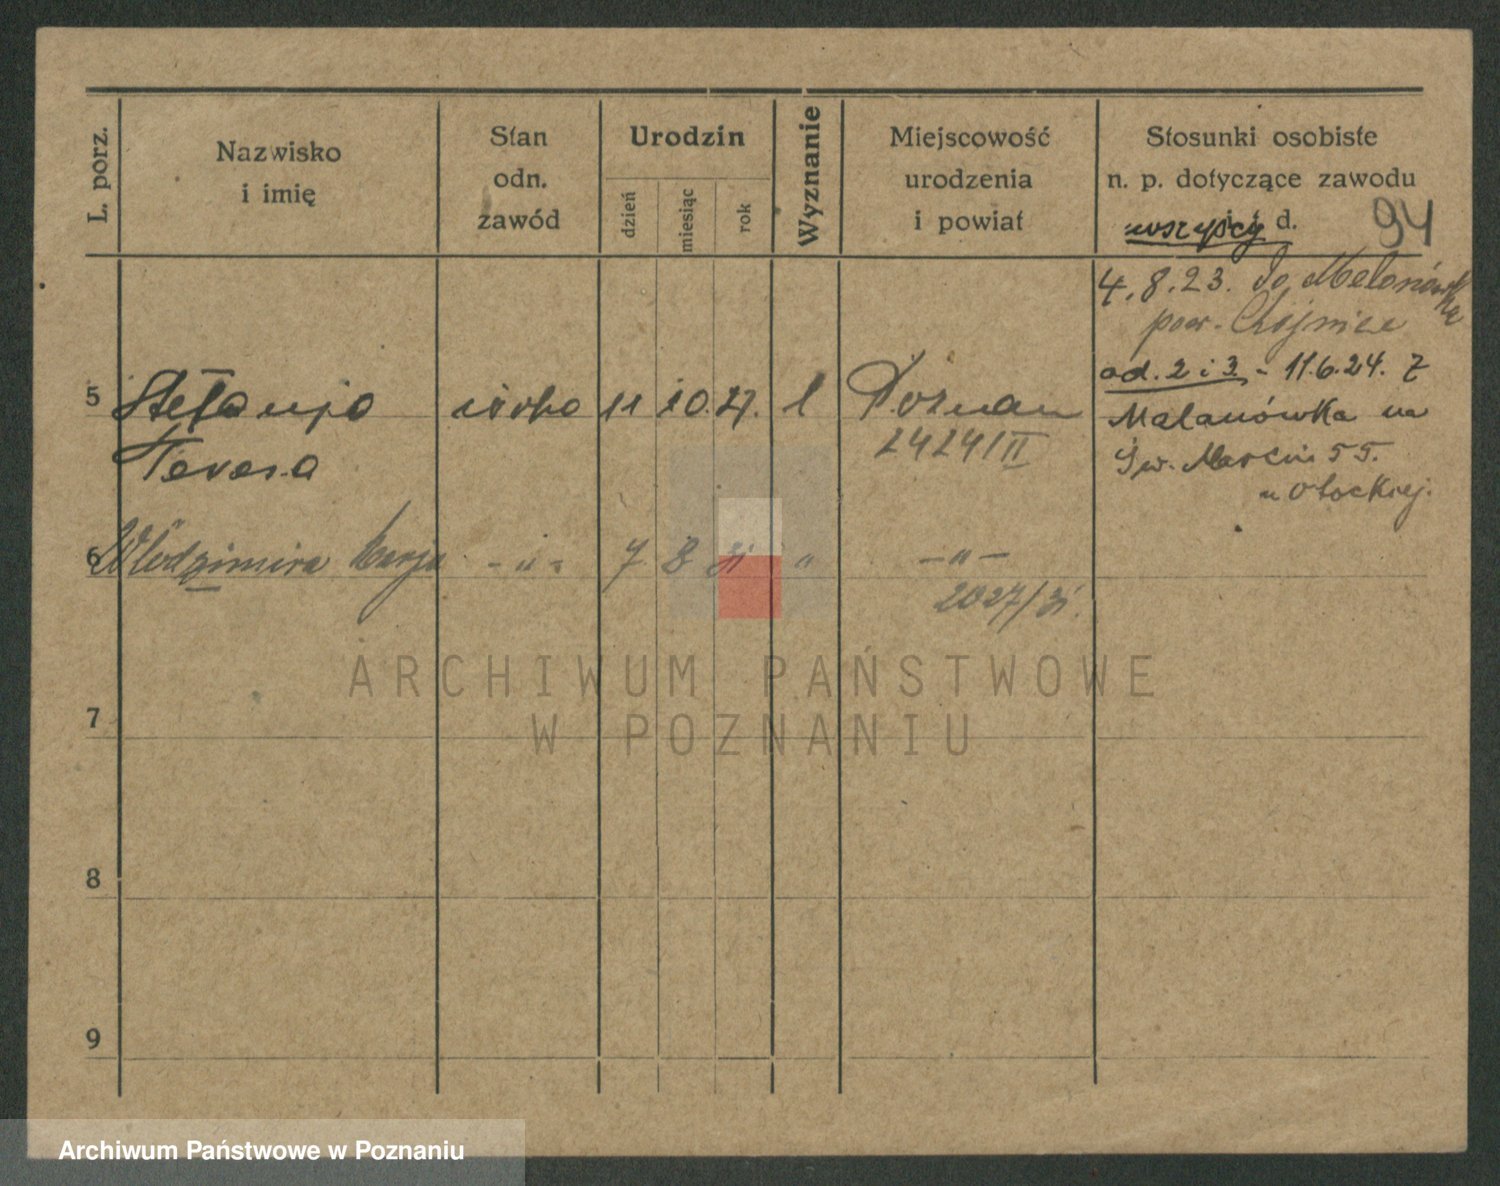 L. porz.
Nazwisko
i imię
Stan
odn.
zawód
Urodzin
dzień
miesiąc
rok
Wyznanie
Miejscowość
urodzenia
i powiat
Stosunki osobiste
n. p. dotyczące zawodu
wszyscy d.
94
4.8.23. do
pow. Chojnice
od. 2 i 3 - 11.6.24. z
Malanówka na
Św. Marcin 55.
u Otockiej.
5 Stefanja córka 11 10. 27. k Poznań
Teresa
2424/II
6 Włodzimira Marja - " - 7 8 31 " - " -
2027/31.
ARCHIWUM PAŃSTWOWE
W POZNANIU
7
8
9
Archiwum Państwowe w Poznaniu